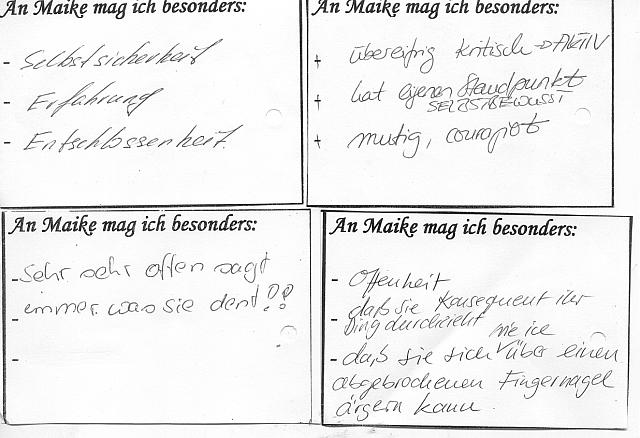 An Maike mag ich besonders:
- Selbstsicherheit
- Erfahrung
- Entschlossenheit.
An Maike mag ich besonders:
+ übereifrig kritisch → AKTIV
+ hat eigenen Standpunkt
SELBSTBEWUSST
+ mutig, couragiert
An Maike mag ich besonders:
- Sehr sehr offen sagt
- immer was sie denkt!?!
-
An Maike mag ich besonders:
- Offenheit
- daß sie konsequent ihr
Ding durchzieht
- daß sie sich wie ich über einen
abgebrochenen Fingernagel
ärgern kann.